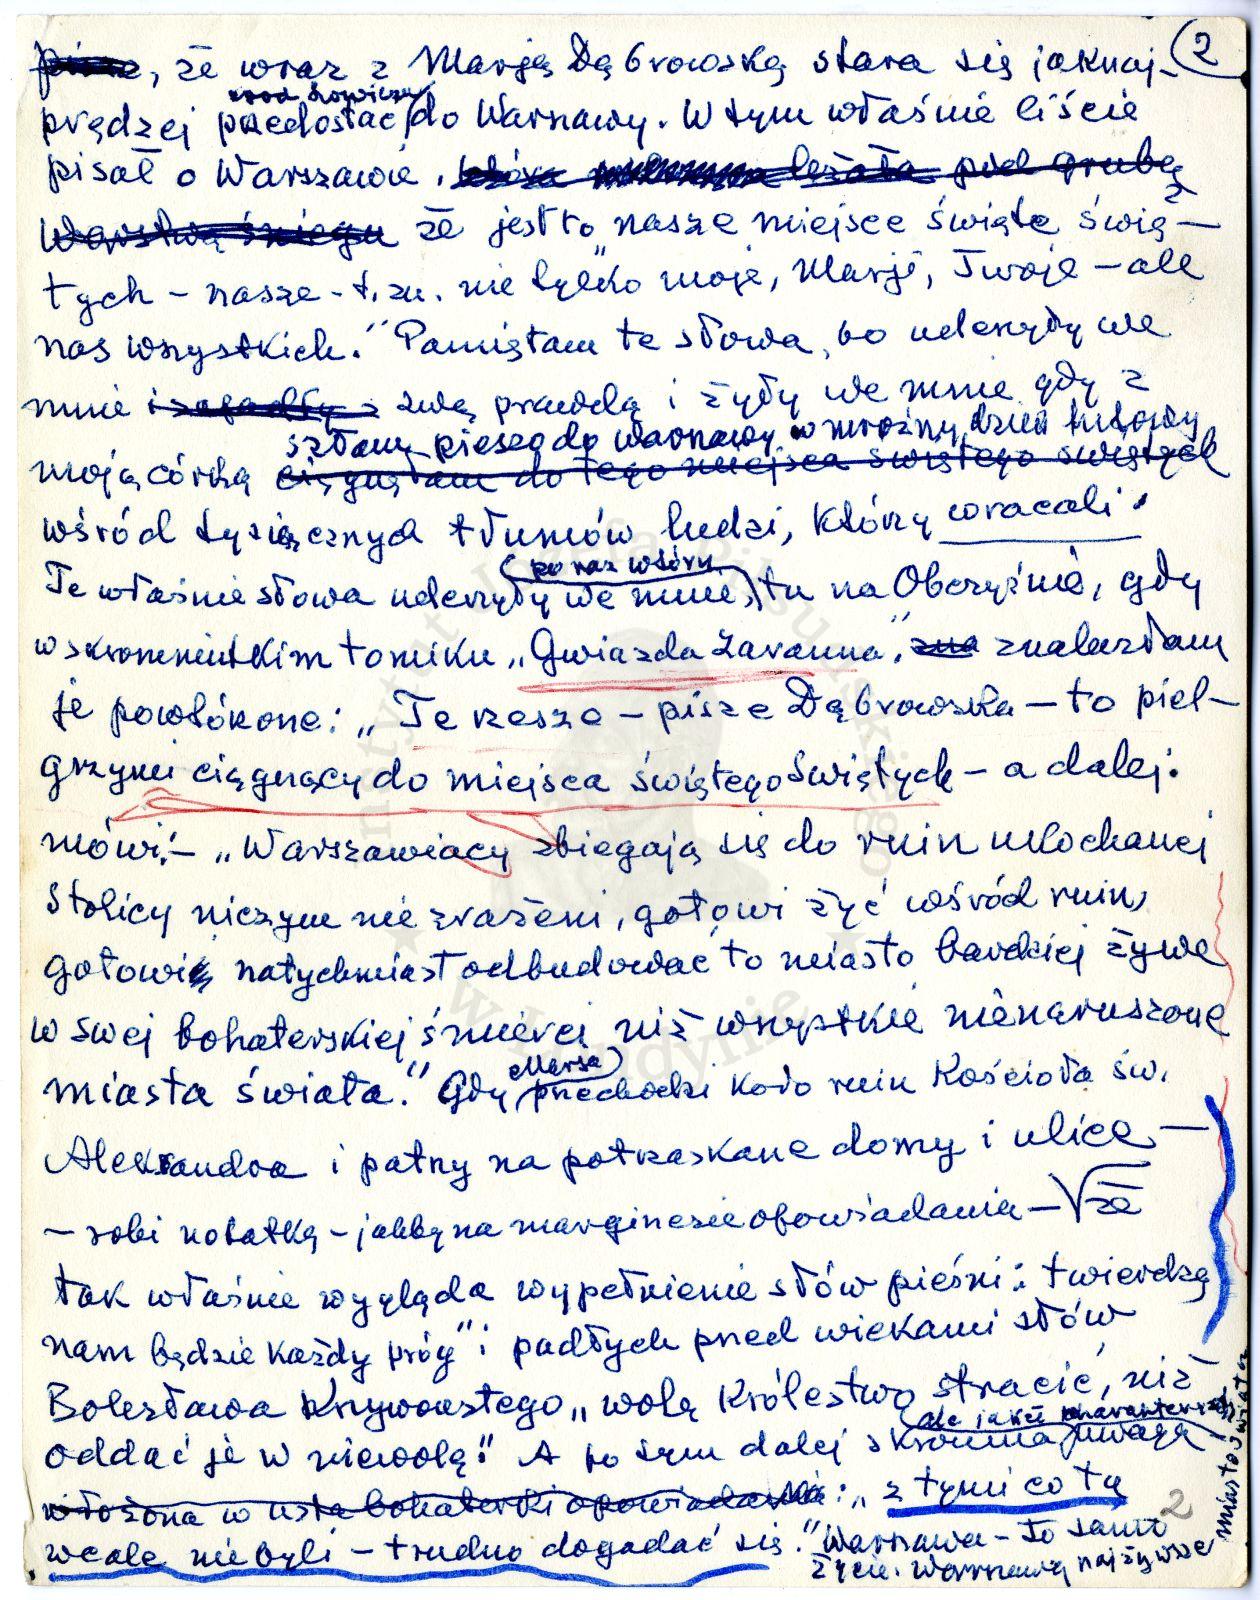 2
pisze, że wraz z Marją Dąbrowską stara się jaknaj-
prędzej przedostać spod Łowicza do Warszawy. W tym właśnie liście
pisał o Warszawie, która leżała pod grubą
warstwą śniegu że jest to "nasze miejsce święte świę-
tych – nasze – t.zn. nie tylko moje, Marji, Twoje – ale
nas wszystkich." Pamiętam te słowa, bo uderzyły we
mnie swą prawdą i żyły we mnie gdy z
szłam pieszo do Warszawy w mroźny dzień lutowy
moją córką ciągnęłam do tego miejsca świętego świętych
wśród tysięcznych tłumów ludzi, którzy wracali.
po raz wtóry
Te właśnie słowa uderzyły we mnie tu na Obczyźnie, gdy
w skromniutkim tomiku „Gwiazda Zaranna", zna znalazłam
je powtórzone: „Te rzesze – pisze Dąbrowska – to piel-
grzymi ciągnący do miejsca świętego świętych – a dalej
mówi: – „Warszawiacy zbiegają się do ruin ukochanej
stolicy niczym nie zrażeni, gotowi żyć wśród ruin,
gotowi natychmiast odbudować to miasto bardziej żywe
w swej bohaterskiej śmierci niż wszystkie nienaruszone
miasta świata." Gdy Marja przechodzi koło ruin Kościoła św.
Aleksandra i patrzy na potrzaskane domy i ulice –
– robi notatkę – jakby na marginesie opowiadania – że
tak właśnie wygląda wypełnienie słów pieśni: twierdzą
nam będzie każdy próg" i padłych przed wiekami słów
Bolesława Krzywoustego „wolę Królestwo stracić, niż
oddać je w niewolę." A po tym dalej skromna ale jakże uwaga
włożona w usta bohaterki opowiadania: „z tymi co tu
wcale nie byli – trudno dogadać się." Warszawa – to samo
życie. Warszawa najżywsze
miasto świata
2
Instytut Józefa Piłsudskiego
w Londynie